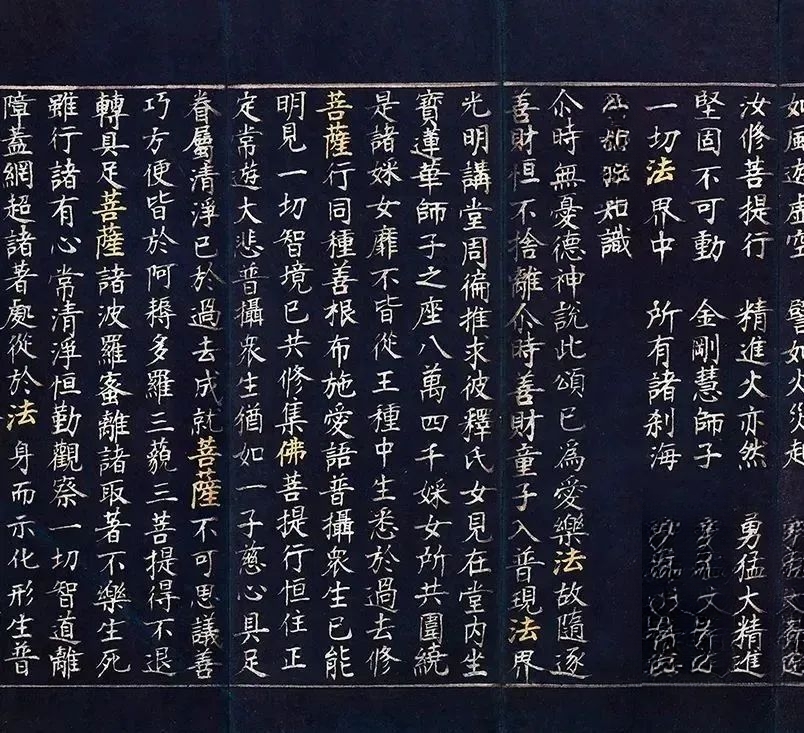 如風遊虛空　譬如火災起
汝修菩提行　精進火亦然　勇猛大精進
堅固不可動　金剛慧師子
一切法界中　所有諸剎海
知識
尒時無憂德神說此頌已為愛樂法故隨逐
善財恒不捨離尒時善財童子入普現法界
光明講堂周徧推求彼釋氏女見在堂內坐
寶蓮華師子之座八萬四千婇女所共圍繞
是諸婇女靡不皆從王種中生悉於過去修
菩薩行同種善根布施愛語普攝眾生已能
明見一切智境已共修集佛菩提行恒住正
定常遊大悲普攝眾生猶如一子慈心具足
眷屬清淨已於過去成就菩薩不可思議善
巧方便皆於阿耨多羅三藐三菩提得不退
轉具足菩薩諸波羅蜜離諸取著不樂生死
雖行諸有心常清淨恒勤觀察一切智道離
障蓋網超諸著處從於法身而示化形生普